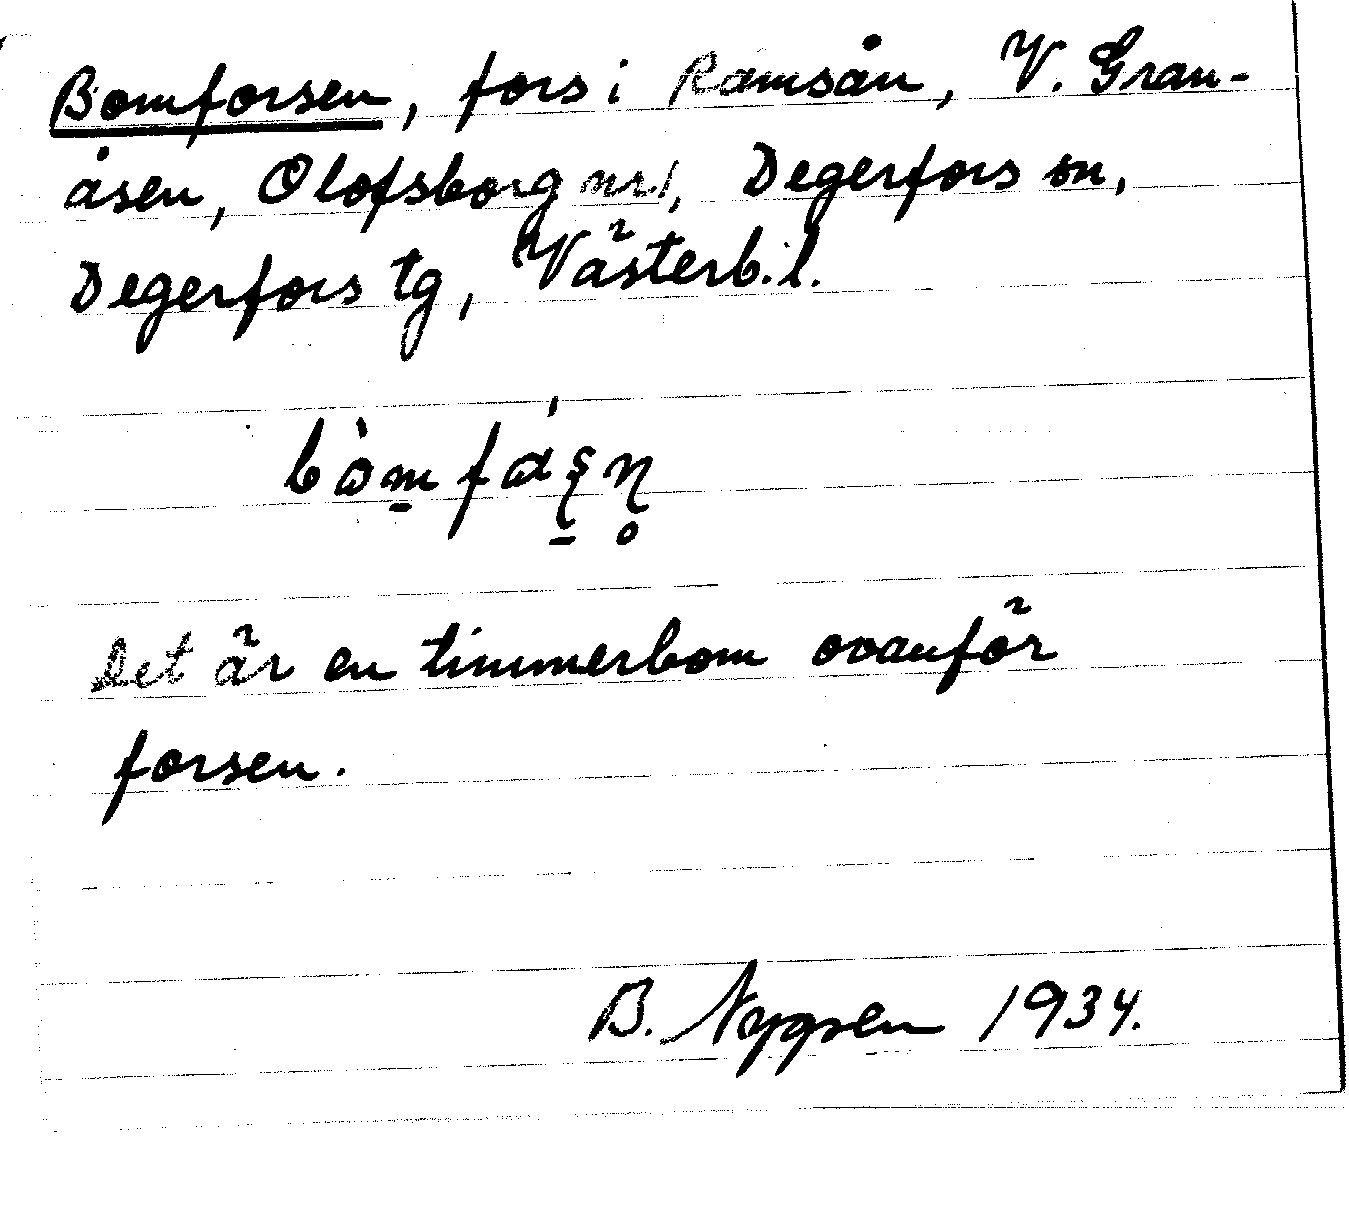 Bomforsen, fors i Ramsån, V. Gran-
åsen, Olofsborg nr 1, Degerfors sn,
Degerfors tg, Västerb. l.
bòm̠fáʂ̠ɳ̥
Det är en timmerbom ovanför
forsen.
B. Nygren 1934.